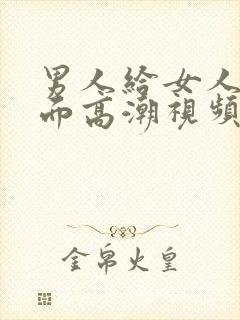 男人给女人
而高潮視頻
金帛火皇